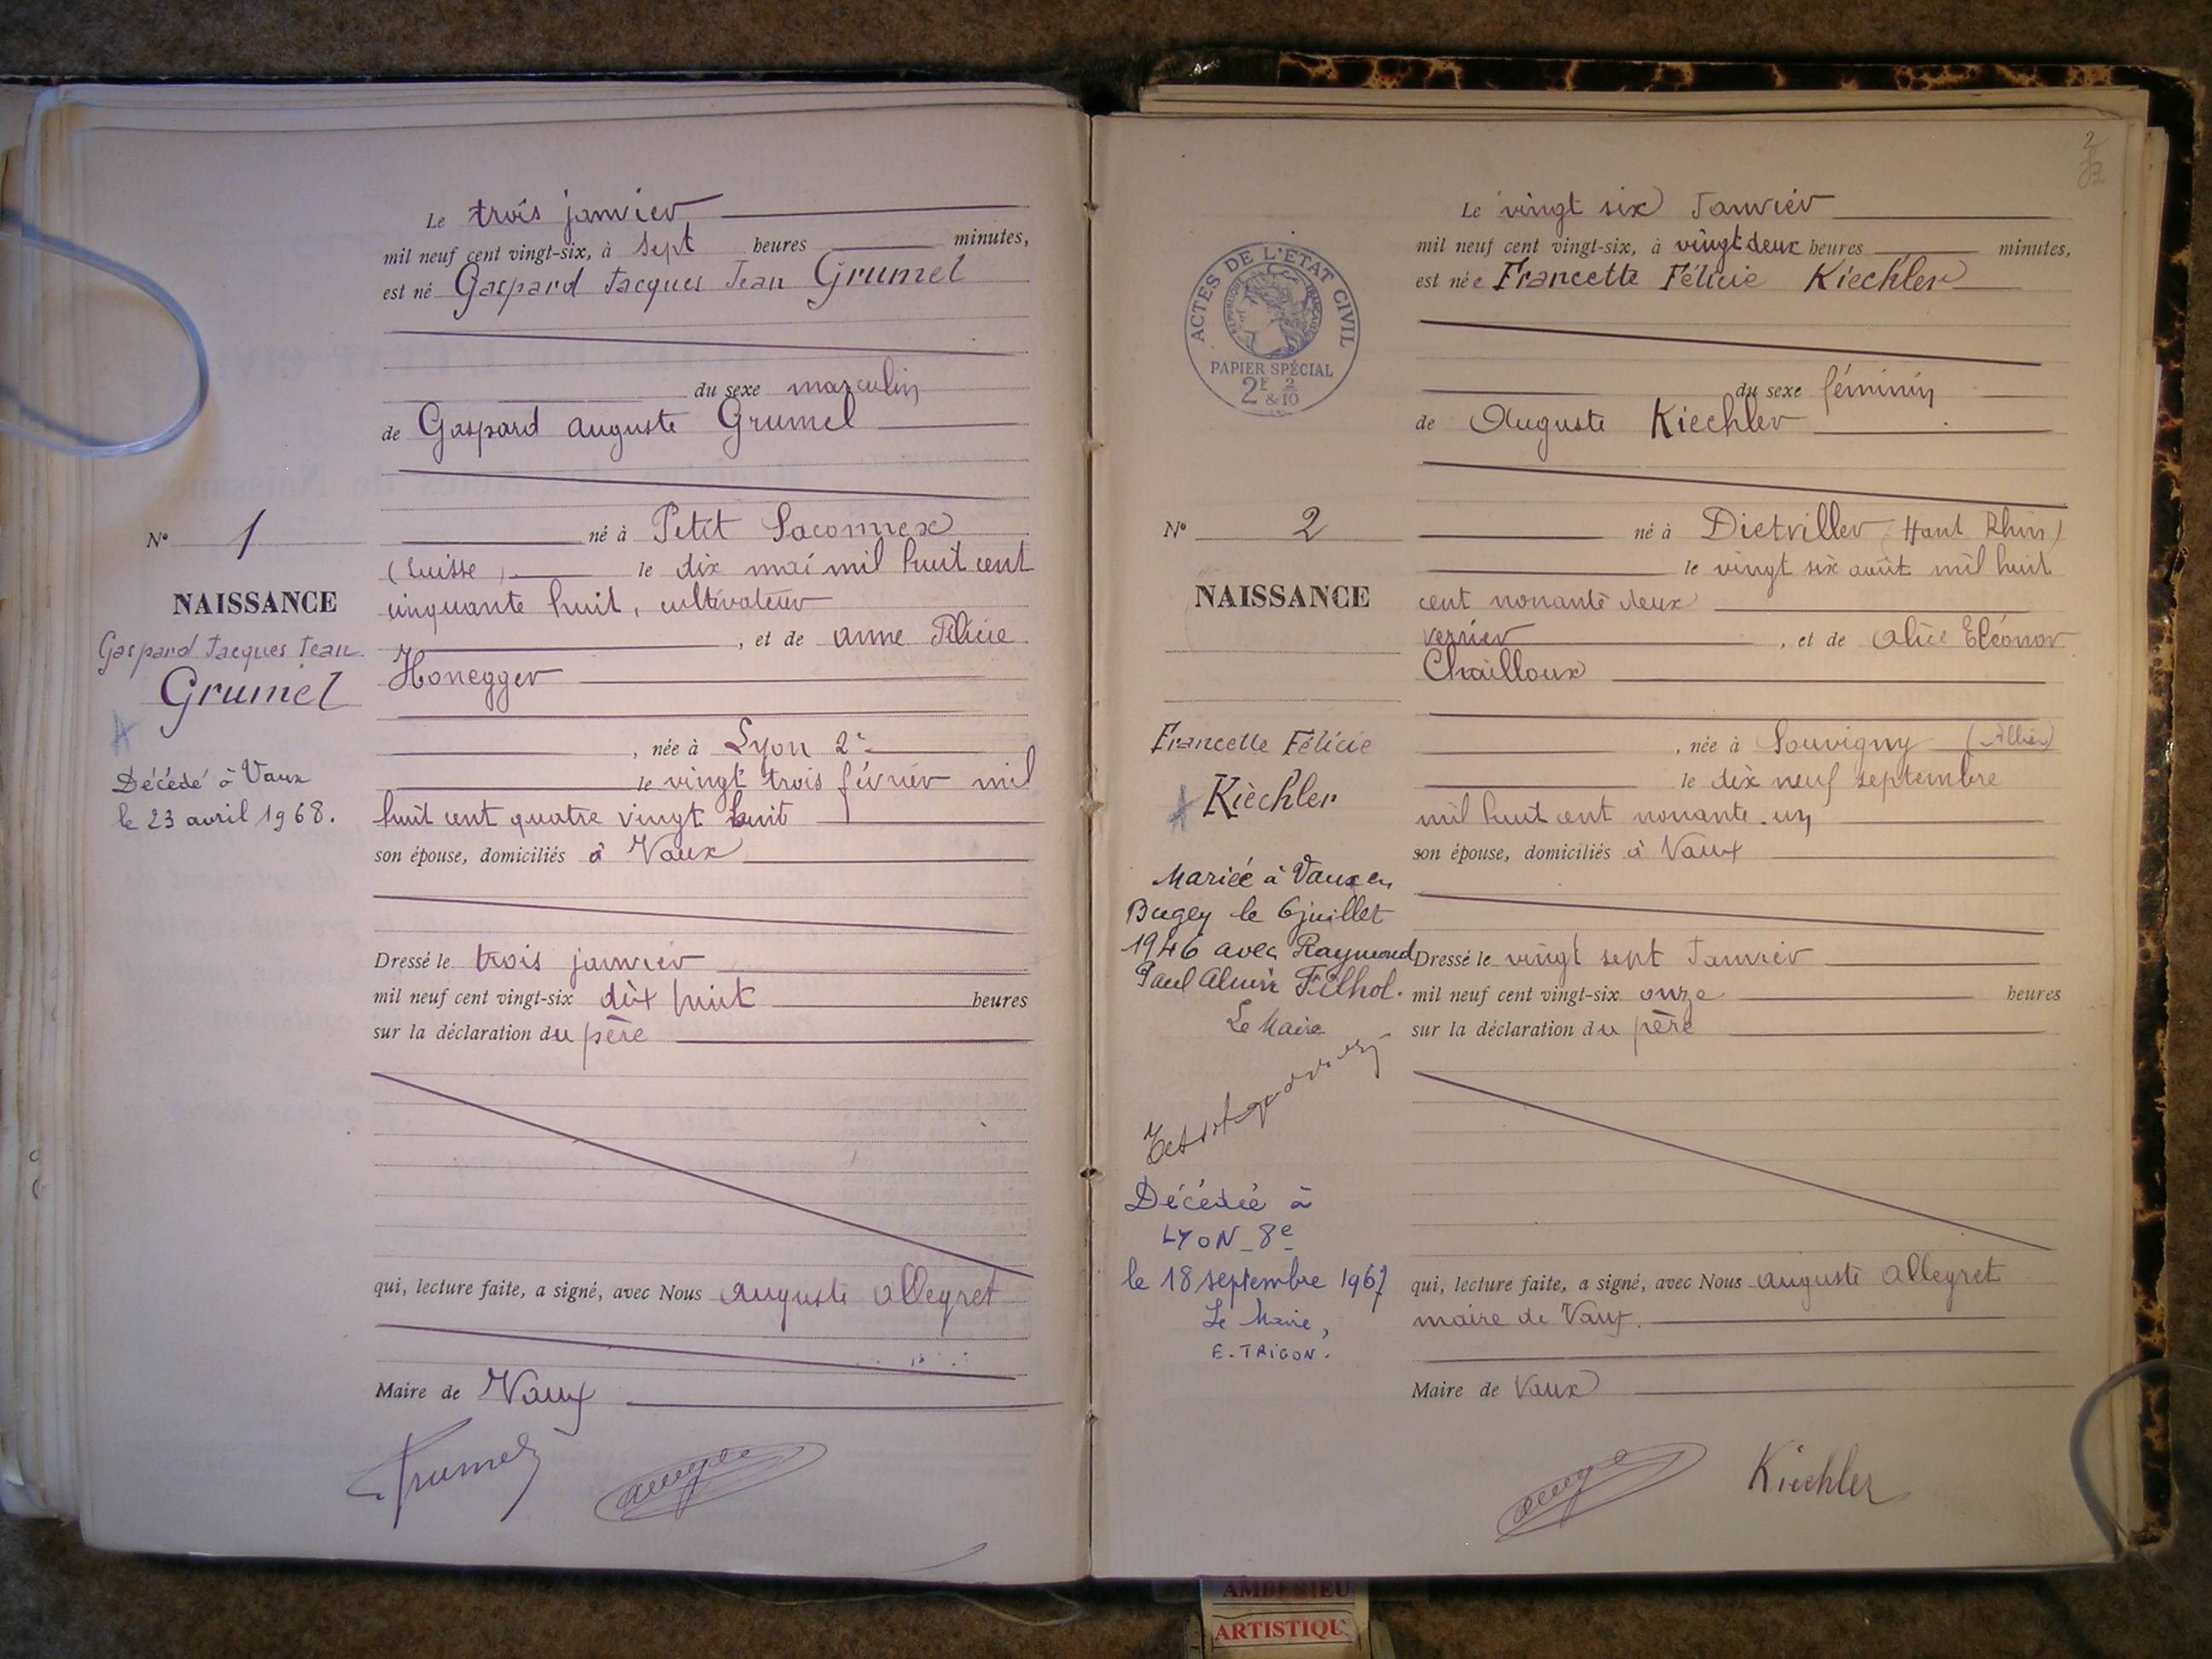 Le trois janvier
mil neuf cent vingt-six, à sept heures minutes,
est né Gaspard Jacques Jean Grumel
du sexe masculin
de Gaspard Auguste Grumel
né à Petit Saconnex
(Suisse) le dix mai mil huit cent
cinquante huit, cultivateur
, et de Anne Félicie
Honegger
, née à Lyon 2e
le vingt trois février mil
huit cent quatre vingt huit
son épouse, domiciliés à Vaux
Dressé le trois janvier
mil neuf cent vingt-six dix huit heures
sur la déclaration du père
qui, lecture faite, a signé, avec Nous Auguste Allegret
Maire de Vaux
Grumel
N° 1
NAISSANCE
Gaspard Jacques Jean
Grumel
Décédé à Vaux
le 23 avril 1968.
2
Le vingt six Janvier
mil neuf cent vingt-six, à vingt deux heures minutes,
est née Francette Félicie Kiechler
du sexe féminin
de Auguste Kiechler
né à Dietviller (Haut Rhin)
le vingt six août mil huit
cent nonante deux
verrier, et de Alice Eléonor
Chailloux
, née à Souvigny (Allier)
le dix neuf septembre
mil huit cent nonante-un
son épouse, domiciliés à Vaux
Dressé le vingt sept Janvier
mil neuf cent vingt-six onze heures
sur la déclaration du père
qui, lecture faite, a signé, avec Nous Auguste Allegret
maire de Vaux.
Maire de Vaux
Kiechler
ACTES DE L'ETAT CIVIL
REPUBLIQUE FRANÇAISE
PAPIER SPÉCIAL
2F & 2/10
N° 2
NAISSANCE
Francette Félicie
Kiechler
Mariée à Vaux en
Bugey le 6 juillet
1946 avec Raymond
Paul Filhol.
Le Maire
Décédée à
LYON_8e
le 18 septembre 1967
Le Maire,
E. TRIGON.
AMBERIEU
ARTISTIQU